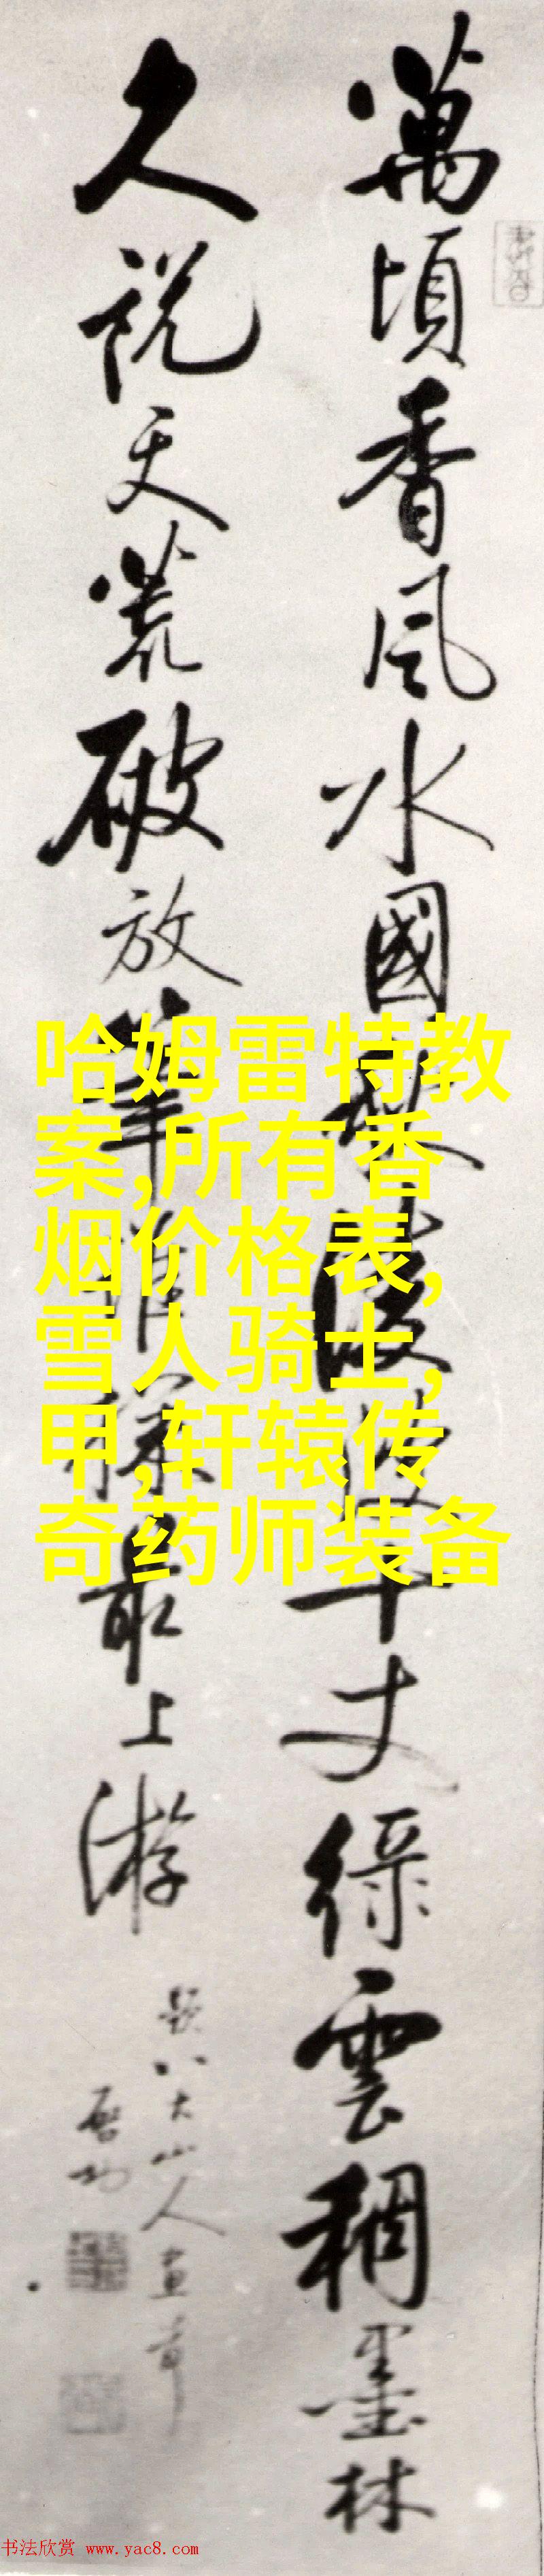 萬頃香風水國秋淩波千丈綠雲稠墨林
久說天荒破放筆誰探最上游
題八大山人畫
啓功
哈姆雷特教
案,所有香
烟价格表,
雪人骑士,
甲,轩辕传
奇药师装备
书法欣赏 www.yac8.com